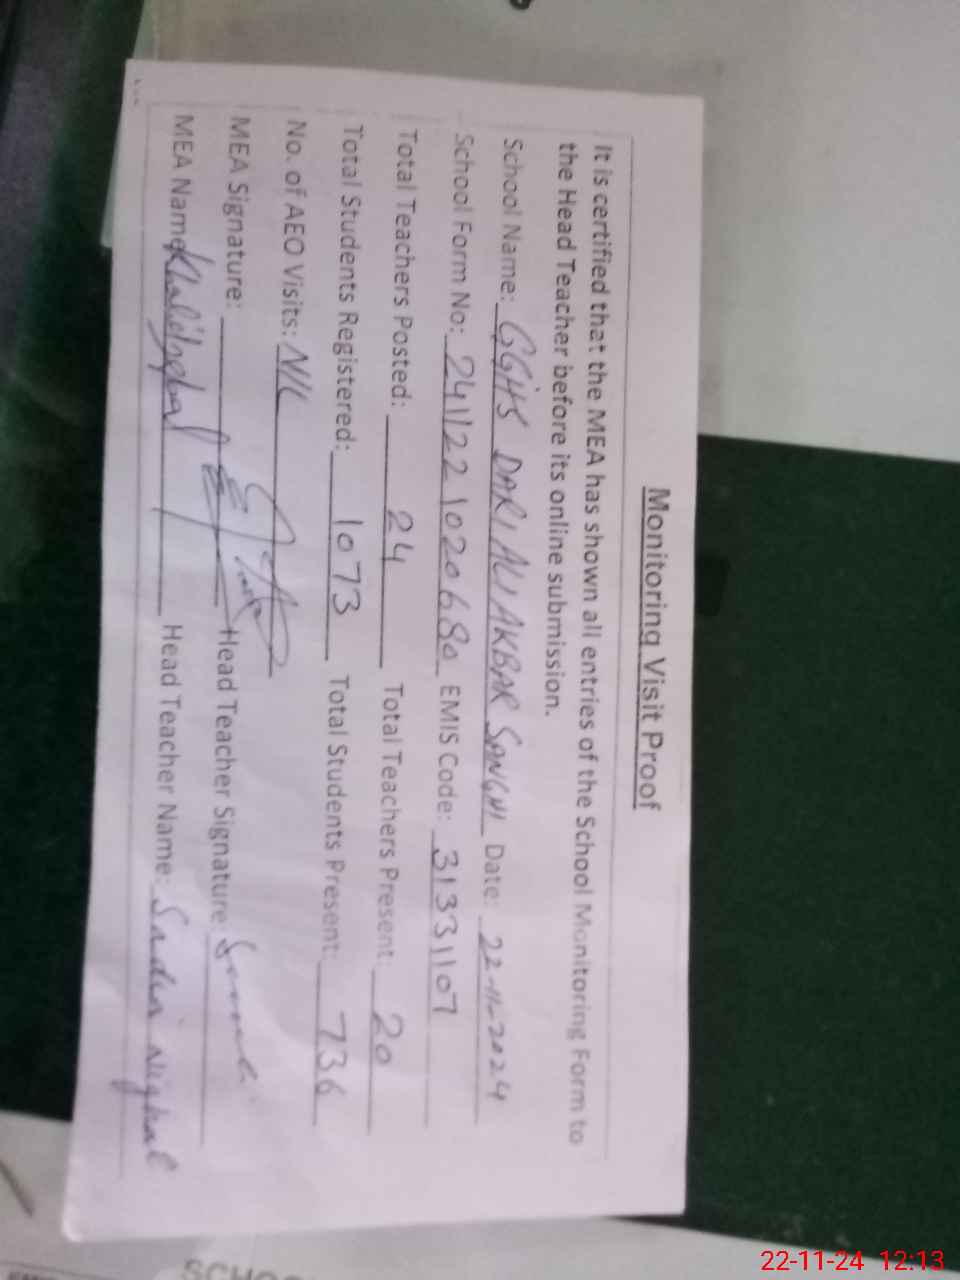 Monitoring Visit Proof
It is certified that the MEA has shown all entries of the School Monitoring Form to
the Head Teacher before its online submission.
School Name: GGHS DARI ALI AKBAR SANGHI Date: 22-11-2024
School Form No: 241122 1020680 EMIS Code: 31331107
Total Teachers Posted: 24 Total Teachers Present: 20
Total Students Registered: 1073 Total Students Present: 736
No. of AEO Visits: NIL
MEA Signature: Head Teacher Signature:
MEA Name: Khalid Iqbal Head Teacher Name: Sadia
22-11-24 12:13